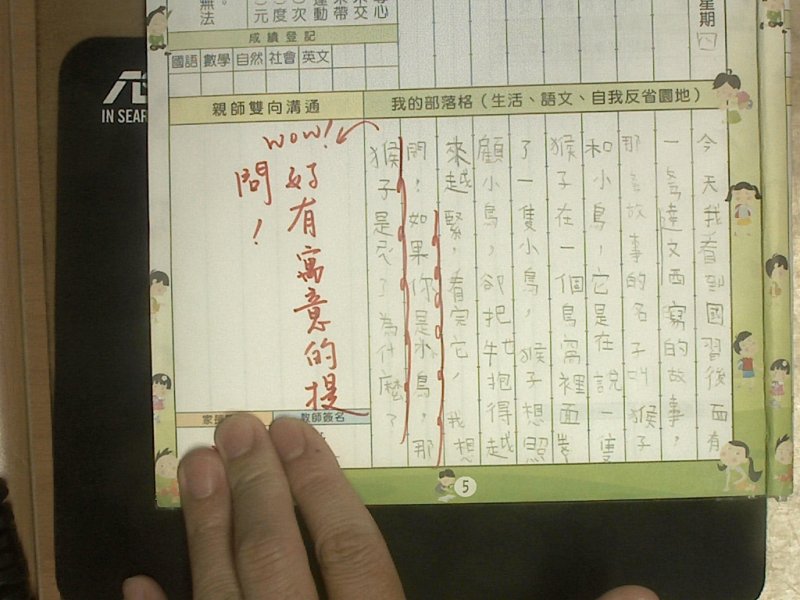 星期
四
心
不交
帶
運動
〇次
〇度
〇元
無法
成績登記
國語 數學 自然 社會 英文
我的部落格（生活、語文、自我反省園地）
今天我看到國習後面有
一篇達文西寫的故事，
那篇故事的名子叫猴子
和小鳥，它是在說一隻
猴子在一個鳥窩裡面
了一隻小鳥，猴子想照
顧小鳥，卻把牠抱得越
來越緊，看完它，我想
問：如果你是小鳥，那
猴子是 了為什麼？
親師雙向溝通
wow!
好有寓意的提
問！
教師簽名
5
IN SEAR